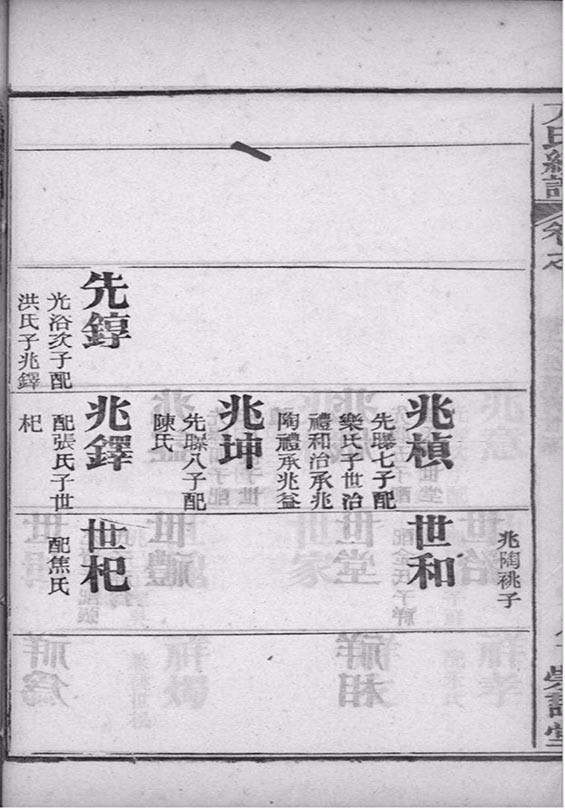 先錞
光浴次子配
洪氏子兆鐸
兆楨
先聯七子配
樂氏子世治
禮和治承兆
陶禮承兆益
兆坤
先聯八子配
陳氏
兆鐸
配張氏子世
杞
兆陶祧子
世和
世杞
配焦氏